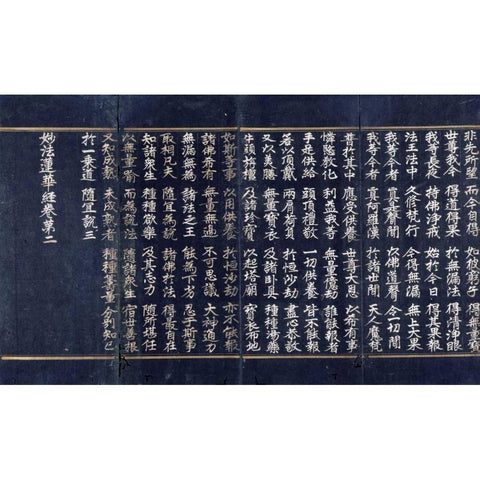 非先所望 而今自得 如彼窮子 得無量寶
世尊我今 得道得果 於無漏法 得清淨眼
我等長夜 持佛淨戒 始於今日 得其果報
法王法中 久修梵行 今得無漏 無上大果
我等今者 真是聲聞 以佛道聲 令一切聞
我等今者 真阿羅漢 於諸世間 天人魔梵
普於其中 應受供養 世尊大恩 以希有事
憐愍教化 利益我等 無量億劫 誰能報者
手足供給 頭頂禮敬 一切供養 皆不能報
若以頂戴 兩肩荷負 於恒沙劫 盡心恭敬
又以美膳 無量寶衣 及諸臥具 種種湯藥
牛頭栴檀 及諸珍寶 以起塔廟 寶衣布地
如斯等事 以用供養 於恒沙劫 亦不能報
諸佛希有 無量無邊 不可思議 大神通力
無漏無為 諸法之王 能為下劣 忍于斯事
取相凡夫 隨宜為說 諸佛於法 得最自在
知諸衆生 種種欲樂 及其志力 隨所堪任
以無量喻 而為說法 隨諸衆生 宿世善根
又知成熟 未成熟者 種種籌量 分別知已
於一乘道 隨宜說三
妙法蓮華經卷第二